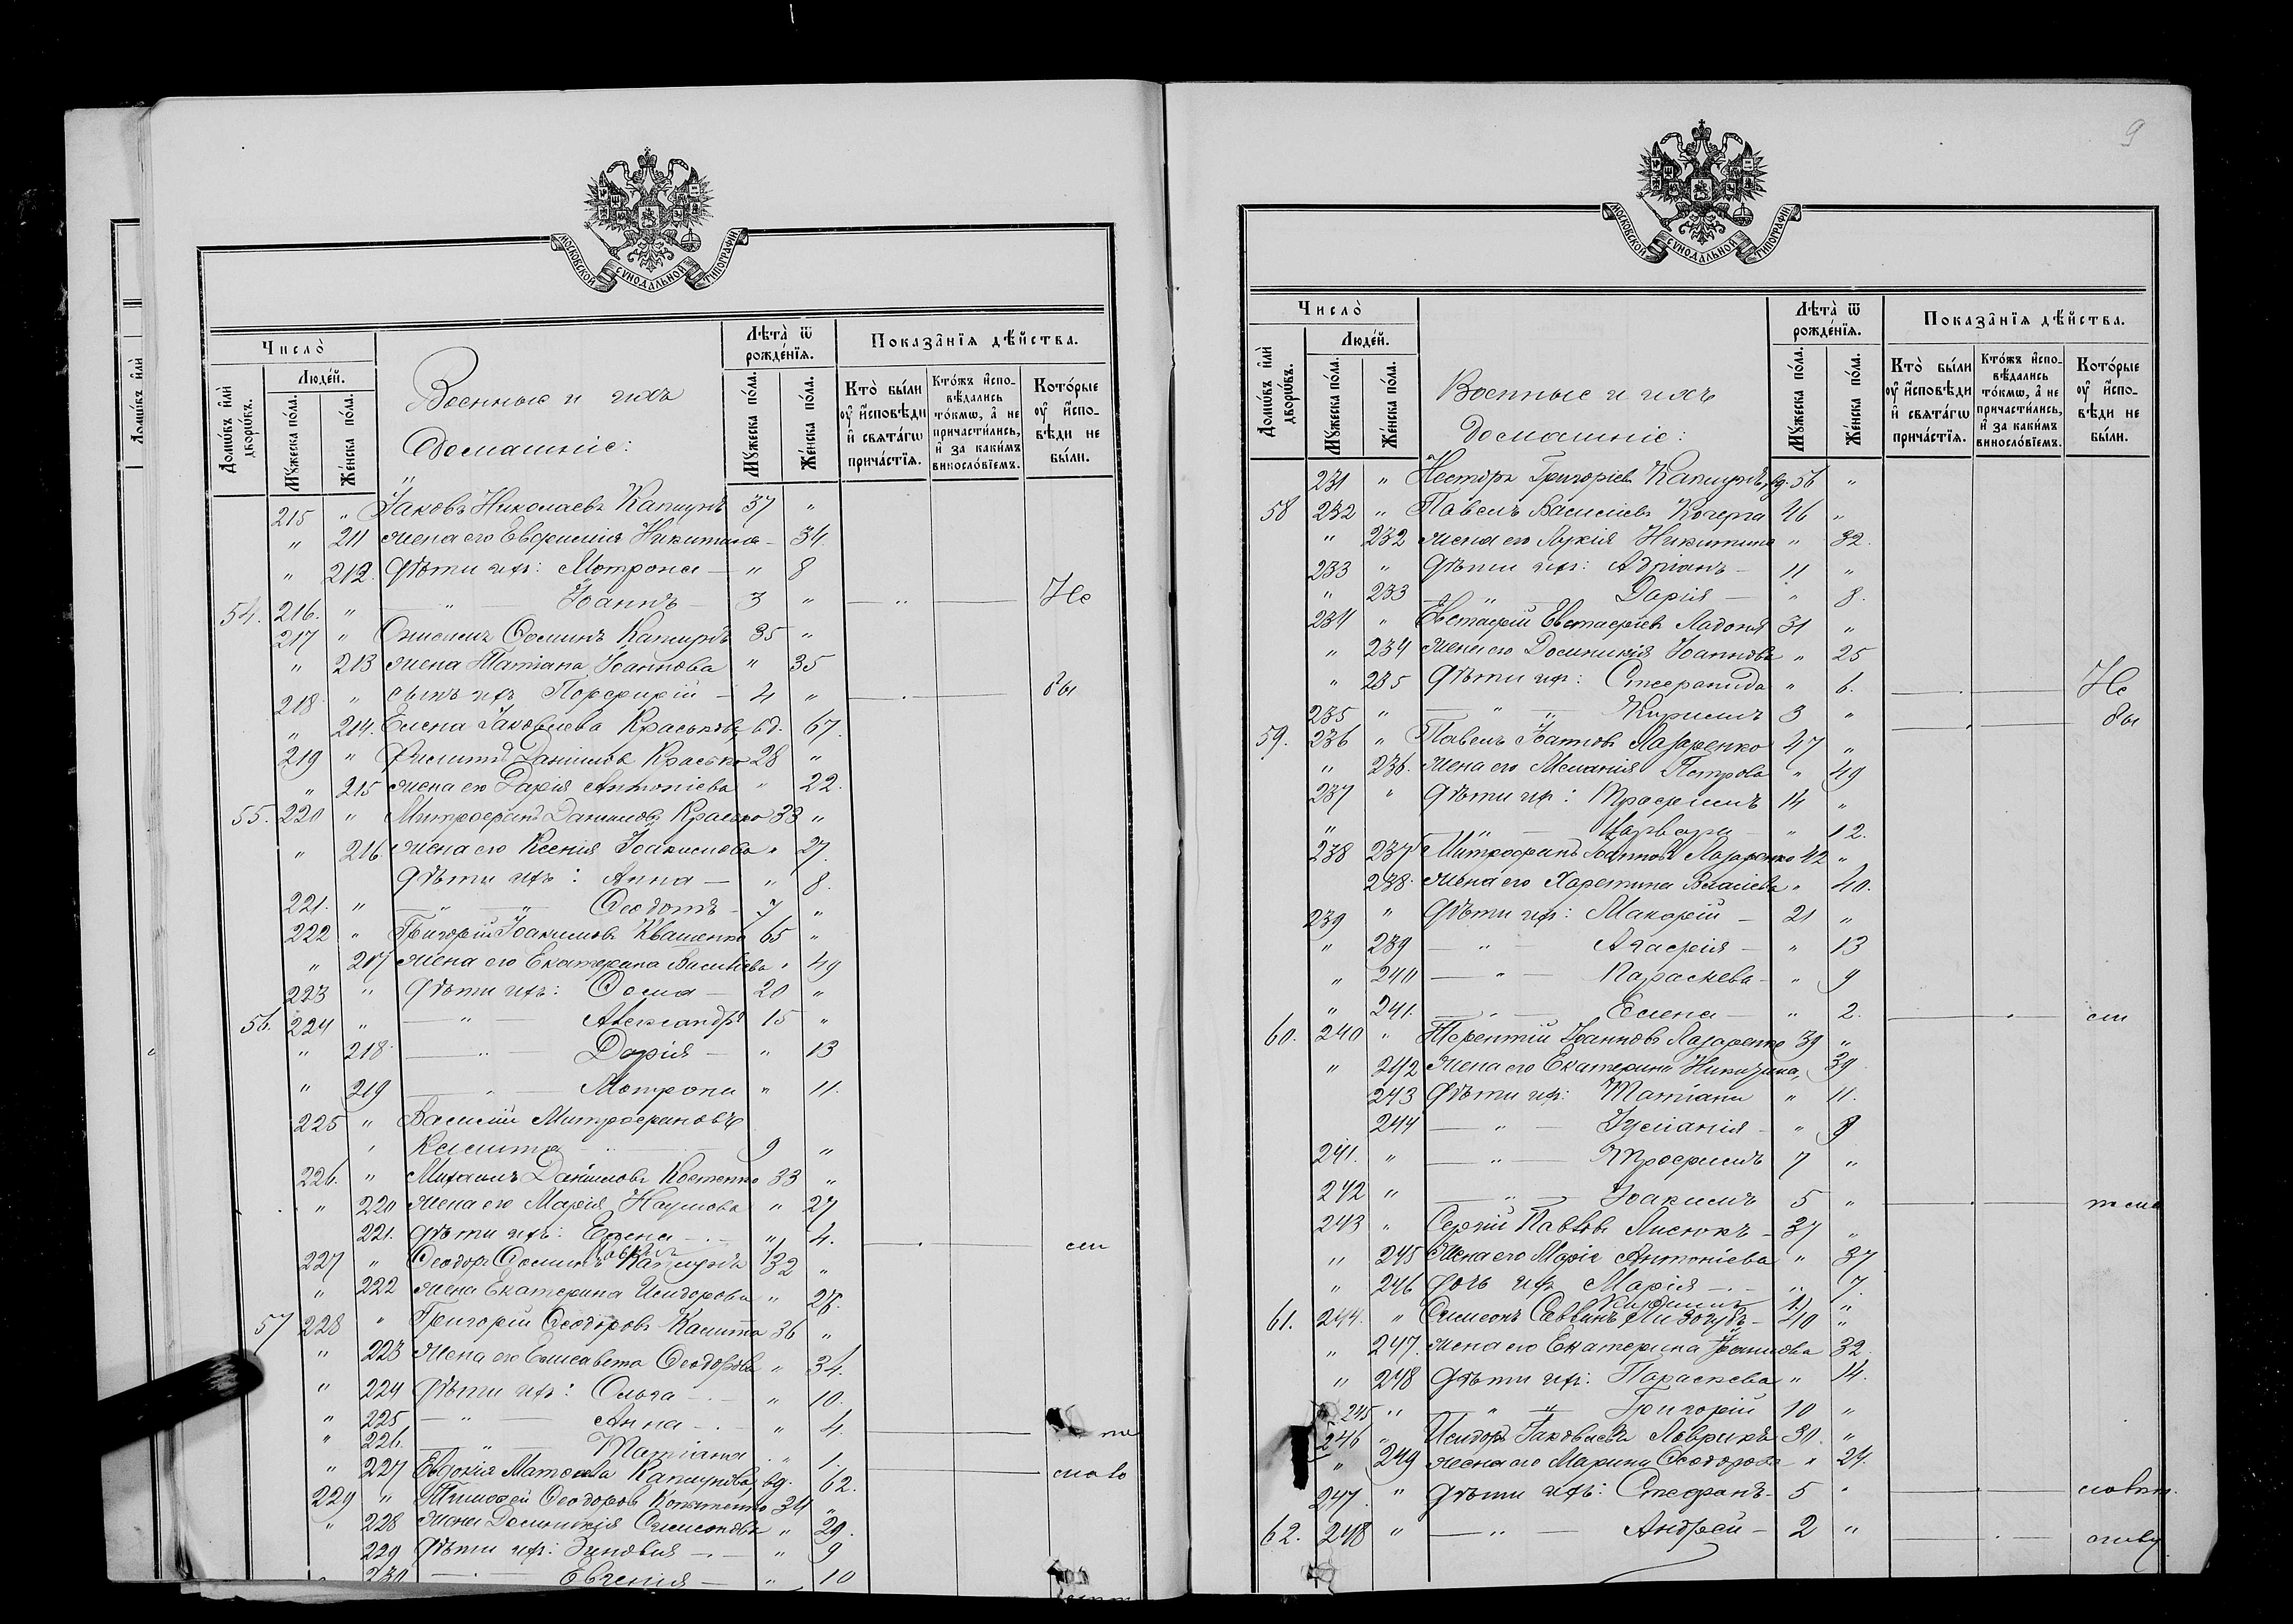 МОСКОВСКОЙ СѴНОДАЛЬНОЙ ТИПОГРАФІИ
Число̀
Домѡ́въ и҆лѝ дворѡ́въ.
Люде́й.
Мꙋ́жеска по́ла.
Же́нска по́ла.
Военные и ихъ
Домашніе:
Лѣта̀ ѿ рожде́нїѧ.
Мꙋ́жеска по́ла.
Же́нска по́ла.
Показа̑нїѧ дѣ́йства.
Кто̀ бы́ли оу҆ и҆сповѣди и҆ свѧта́гѡ прича́стїѧ.
Кто́жъ и҆спо-вѣдались то́кмѡ, а҆ не причасти́лись, и҆ за каки́мъ винословїемъ.
Кото́рые оу҆ и҆спо-вѣди не бы́ли.
215 " Іаковъ Николаевъ Капшукъ 37 "
" 211 жена его Евфимія Никитина - 34.
" 212. дѣти ихъ: Мотрона — " 8
54. 216. " — " — Іоаннъ — 3 " — " — Не
217 " Ѳоминъ 35 "
" 213 жена Татіана Іоаннова " 35
218 " сынъ ихъ Порфирій — 4 " — . — бы
" 214. Елена Іаковлева Краськова, вд. 67.
219 " Филиппъ Даніиловъ Красько 28 "
" 215 жена его Дарія Антоніева " 22.
55. 220 " Митрофанъ Даниловъ Красько 33 "
" 216. жена его Ксенія Іоакимова " 27.
дѣти ихъ: Анна — " 8.
221. " — " — Ѳеодотъ — 7 "
222 " Григорій Іоакимовъ Квашенко 65 "
" 217 жена его Екатерина Васильева " 49
223 " дѣти ихъ: Ѳома — 20 "
56. 224 " — " — Александръ 15 "
" 218. — " — Дарія — " 13
" 219 — " — Мотрона " 11.
225 " Василій Митрофановъ
" Калита — 9 "
226. " Михаилъ Даніиловъ Костенко 33 "
" 220 жена его Марія Наумова " 27
221. дѣти ихъ: Елена — . — " 4. — . — ли
227 " Ѳеодоръ Ѳоминъ Капшукъ 32 "
" 222 жена Екатерина Исидорова " 28.
57 228 " Григорій Ѳеодоровъ Калита 36 "
" 223 жена его Елисавета Ѳеодорова " 34.
" 224 дѣти ихъ: Ольга — . — " 10.
" 225 — " — Анна — . — " 4.
" 226. — " — Татіана " 1.
" 227 Евдокія Матѳеева Капшукова, вд. 62. мало
229 " Тимофей Ѳеодоровъ 34 "
" 228 жена Домникія Симеонова " 29.
229 дѣти ихъ: Зиновія — . — " 9
230 — . — Евгенія — " 10
9
МОСКОВСКОЙ СѴНОДАЛЬНОЙ ТИПОГРАФІИ
Число̀
Домѡ́въ и҆лѝ дворѡ́въ.
Люде́й.
Мꙋ́жеска по́ла.
Же́нска по́ла.
Военные и ихъ
домашніе:
Лѣта̀ ѿ рожде́нїѧ.
Мꙋ́жеска по́ла.
Же́нска по́ла.
Показа̑нїѧ дѣ́йства.
Кто̀ бы́ли оу҆ и҆сповѣди и҆ свѧта́гѡ прича́стїѧ.
Кто́жъ и҆спо-вѣдались то́кмѡ, а҆ не причасти́лись, и҆ за каки́мъ винословїемъ.
Кото́рые оу҆ и҆спо-вѣди не бы́ли.
231 " Несторъ Григоріевъ Капшукъ, вд. 56 "
58 232 " Павелъ Василіевъ Кочерга 46 "
" 232 жена его Лукія Никитина " 32.
233 " дѣти ихъ: Адріанъ — 11 "
" 233 — " — Дарія — " 8.
234 " Евстафій Евстафіевъ 31 "
" 234 жена его Домникія Іоаннова " 25
" 235 дѣти ихъ: Стефанида " 6. — . — Не
235 " — " — Кириллъ 3 "
59. 236 " Павелъ Іоанновъ Лазаренко 47 " — . — бы
" 236. жена его Меланія Петрова " 49
237 " дѣти ихъ: Трофимъ 14 "
" — " — Варвара — " 12.
238 237 Митрофанъ Іоанновъ Лазаренко 42 "
238. жена его Харитина Власіева " 40.
239 " дѣти ихъ: Макарій — 21 "
" 239 — " — Агафія — " 13
" 240 — " — Параскева — " 9
" 241. — " — Елена — " 2. — " — ли
60. 240 " Терентій Іоанновъ Лазаренко 39 "
" 242 жена его Екатерина 39
243 дѣти ихъ: Татіана " 11.
244 — " — Іуліанія — " 9
241. " — " — Трофимъ 7 "
242 " — " — Іоакимъ 5 " — . —
243 " Сергій Павловъ Лисюкъ — 37 "
" 245 жена его Марія Антоніева " 37
" 246 дочь ихъ Марія — . — " 7.
61. 244. " Симеонъ Саввинъ Лизогубъ — 40 "
" 247. жена его Екатерина 32.
" 248 дѣти ихъ: Параскева " 14.
245 " — " — Григорій 10 "
246 " Исидоръ Іаковлевъ Лаврикъ 30. "
" 249 жена его Марина Ѳеодорова " 24.
247. " дѣти ихъ: Стефанъ — 5 " — . —
62. 248 " — " — Андрей — 2 " — . —